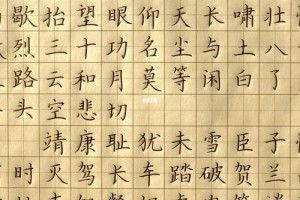 歇抬望眼仰天长啸壮
烈三十功名尘与土八
路云和月莫等闲白了
头空悲切
靖康耻犹未雪臣子
时灭驾长车踏破贺兰